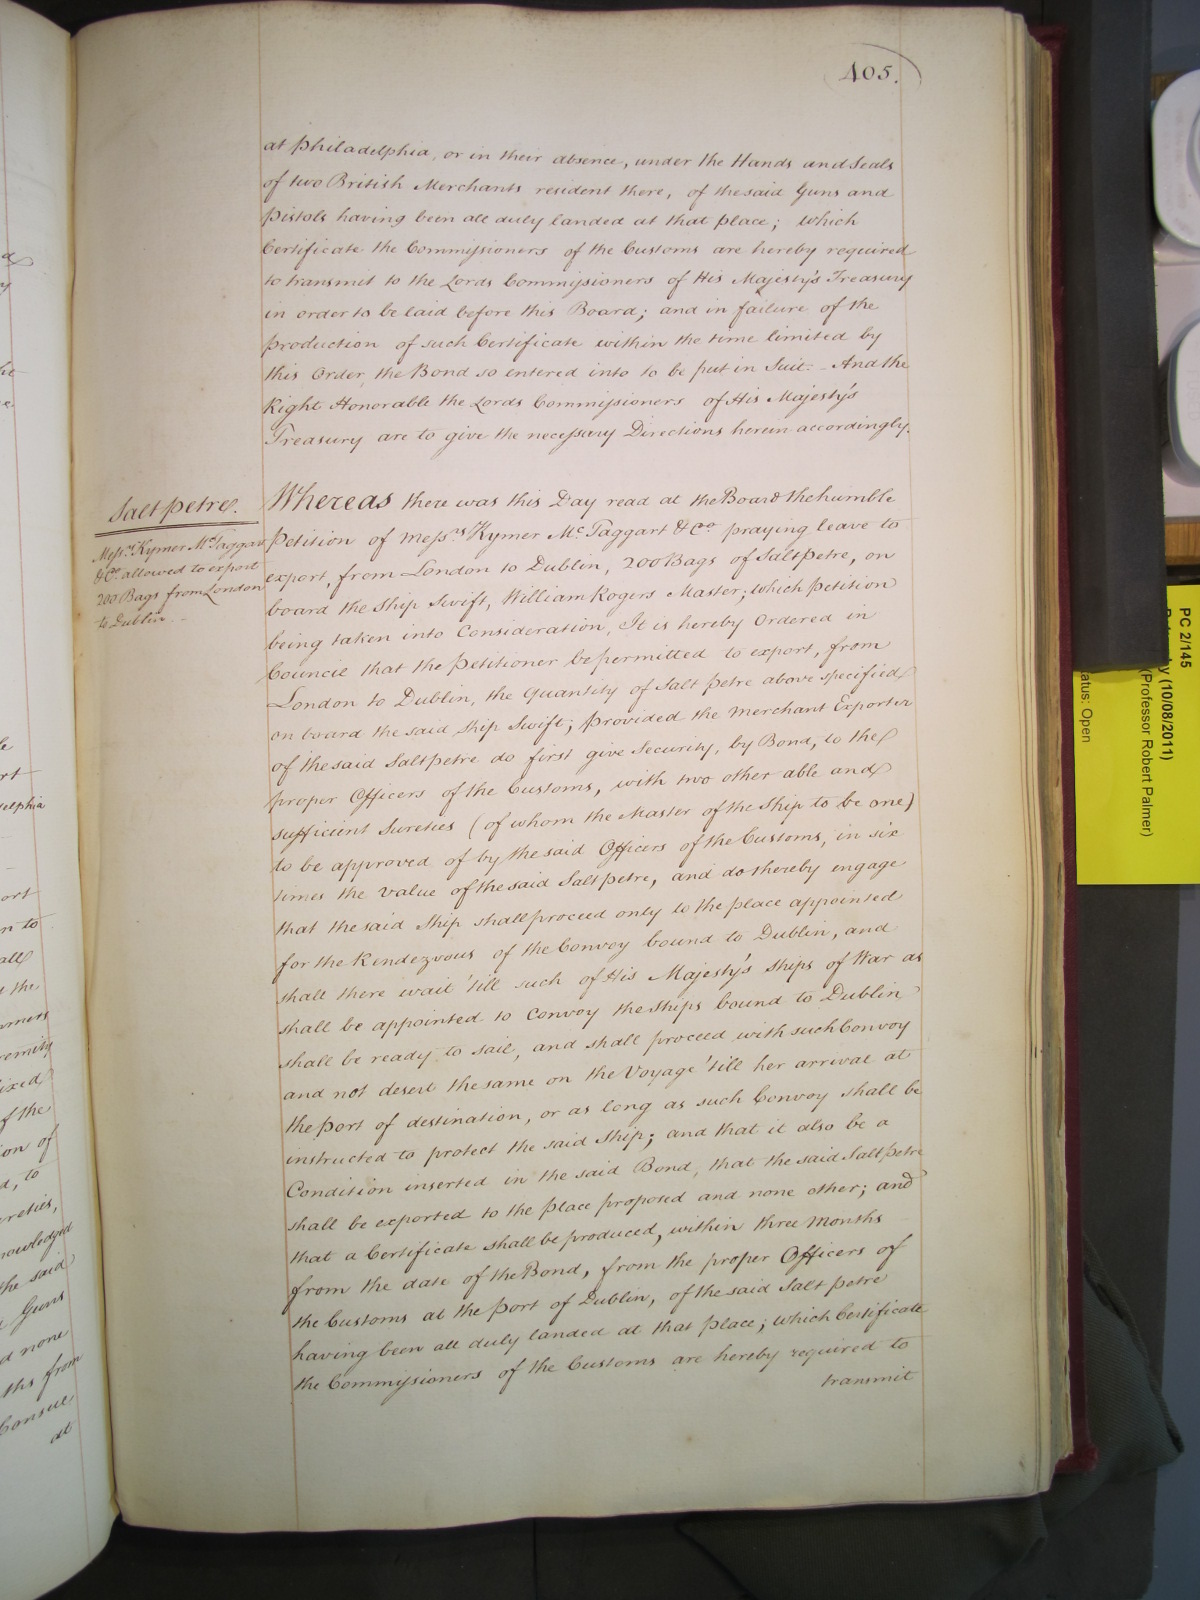 405.
at Philadelphia, or in their absence, under the Hands and Seals
of two British Merchants resident there, of the said Guns and
Pistols having been all duly landed at that place; which
Certificate the Commissioners of the Customs are hereby required
to transmit to the Lords Commissioners of His Majesty's Treasury
in order to be laid before this Board; and in failure of the
production of such Certificate within the time limited by
this Order, the Bond so entered into to be put in Suit. - And the
Right Honorable the Lords Commissioners of His Majesty's
Treasury are to give the necessary Directions herein accordingly.
Salt petre.
Messrs. Kymer McTaggart
& Co. allowed to export
200 Bags from London
to Dublin. -
Whereas there was this Day read at the Board the humble
Petition of Messrs. Kymer McTaggart & Co. praying leave to
export, from London to Dublin, 200 Bags of Saltpetre, on
board the Ship Swift, William Rogers Master; which Petition
being taken into Consideration, It is hereby Ordered in
Council that the Petitioner be permitted to export, from
London to Dublin, the Quantity of Salt petre above specified
on board the said Ship Swift; provided the Merchant Exporter
of the said Saltpetre do first give Security, by Bond, to the
proper Officers of the Customs, with two other able and
sufficient Sureties (of whom the Master of the Ship to be one)
to be approved of by the said Officers of the Customs, in six
times the value of the said Saltpetre, and do thereby engage
that the said Ship shall proceed only to the place appointed
for the Rendezvous of the Convoy bound to Dublin, and
shall there wait 'till such of His Majesty's Ships of War as
shall be appointed to Convoy the Ships bound to Dublin
shall be ready to sail, and shall proceed with such Convoy
and not desert the same on the Voyage 'till her arrival at
the Port of destination, or as long as such Convoy shall be
instructed to protect the said Ship; and that it also be a
Condition inserted in the said Bond, that the said Saltpetre
shall be exported to the place proposed and none other; and
that a Certificate shall be produced, within three Months
from the date of the Bond, from the proper Officers of
the Customs at the Port of Dublin, of the said Salt petre
having been all duly landed at that place; which Certificate
the Commissioners of the Customs are hereby required to
transmit
PC 2/145
(10/08/2011)
(Professor Robert Palmer)
Open